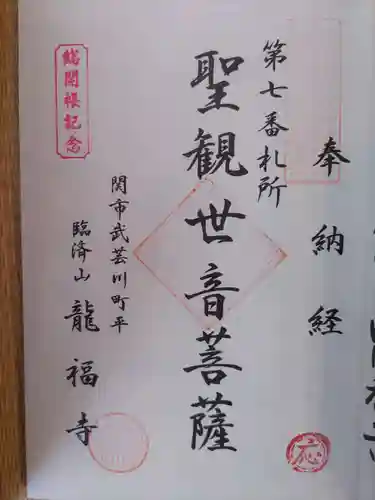 奉納経
第七番札所
聖観世音菩薩
関市武芸川町平
臨済山 龍福寺
総開帳記念